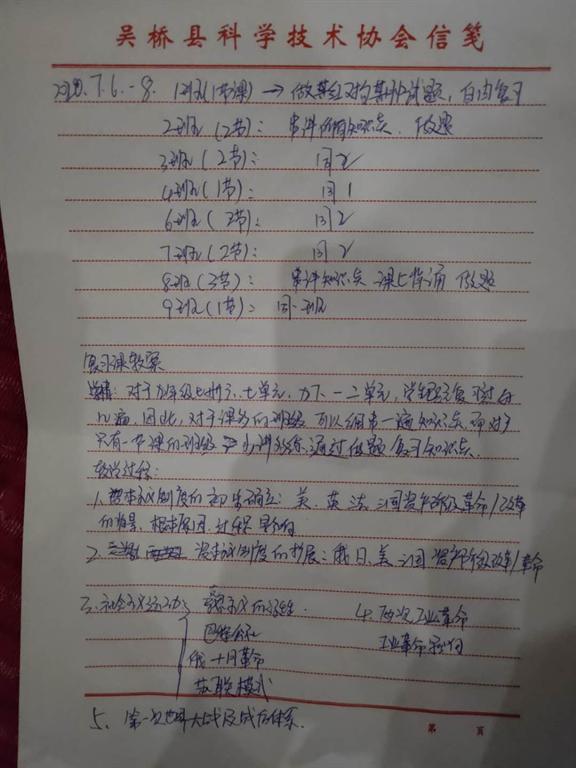 吴桥县科学技术协会信笺
2020.7.6.-8. 1班(1节课) → 做某红对勾期中试题,自由复习
2班(2节): 串讲所有知识点、做题
3班(2节): 同2
4班(1节): 同1
6班(3节): 同2
7班(2节): 同2
8班(3节): 串讲知识点 课上背诵 做题
9班(1节): 同一班
复习课教案
学情: 对于九年级七单元,九下一二单元,学生已复习过
几遍,因此,对于课多的班级可以细串一遍知识点,而对于
只有一节课的班级 通过做题复习知识点。
教学过程:
1.资本主义制度的初步确立: 美、英、法、三国资产阶级革命/改革
的背景,根本原因,过程 影响
2. 资本主义制度的扩展: 俄、日、美三国资产阶级改革/革命
3. 社会主义运动: 马克思主义的诞生. 4. 两次工业革命
巴黎公社 工业革命影响
俄十月革命
苏联模式
5. 第一次世界大战及战后体系.
第 页